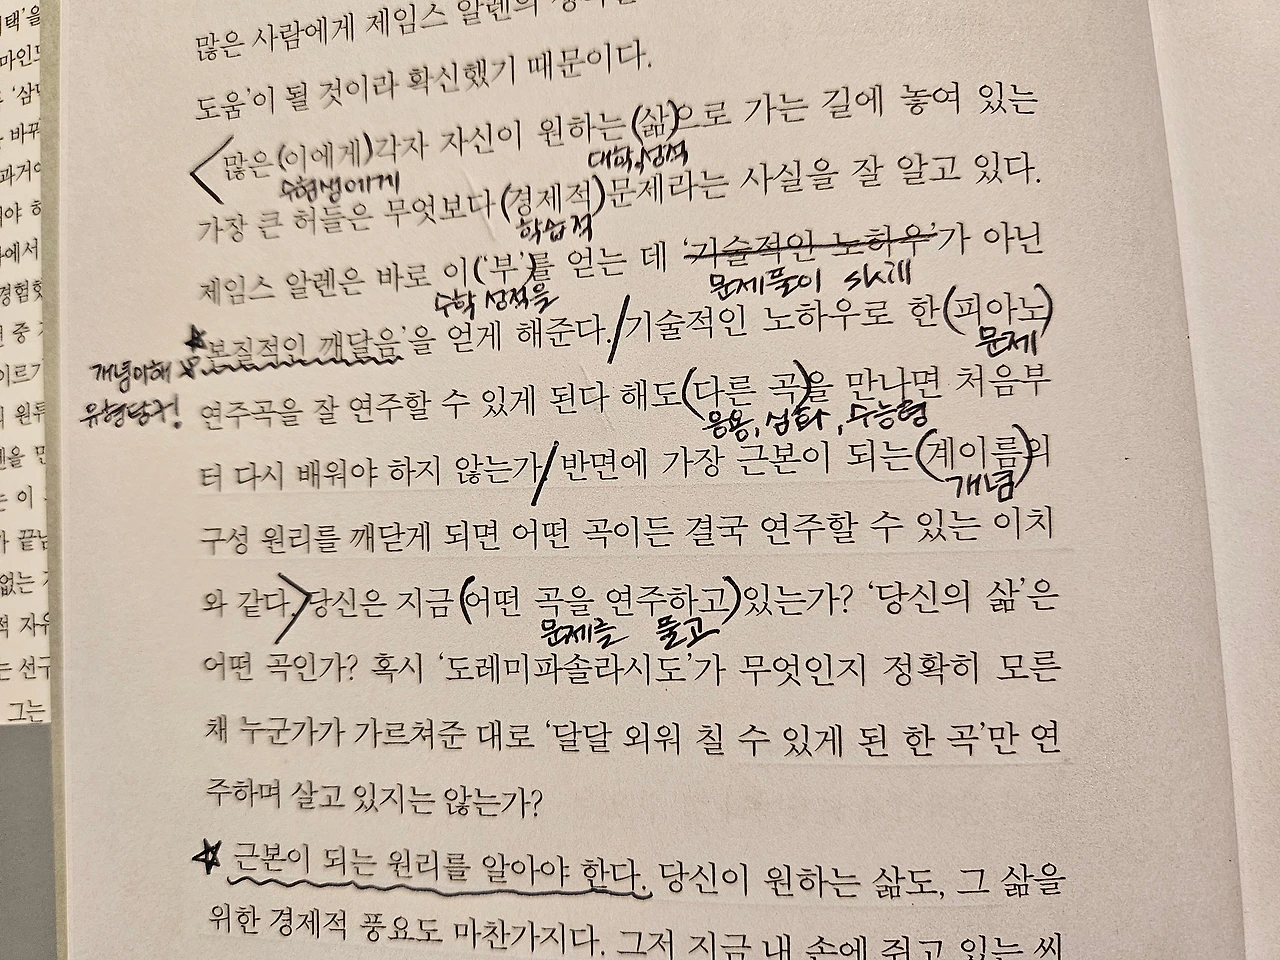 많은 사람에게 제임스 알렌의
도움'이 될 것이라 확신했기 때문이다.
많은 (이에게) 각자 자신이 원하는 (삶)으로 가는 길에 놓여 있는
수험생에게 대학, 성적
가장 큰 허들은 무엇보다 (경제적) 문제라는 사실을 잘 알고 있다.
학습적
제임스 알렌은 바로 이 ('부')를 얻는 데 '기술적인 노하우'가 아닌
수학 성적을 문제풀이 skill
'본질적인 깨달음'을 얻게 해준다. / 기술적인 노하우로 한 (피아노)
개념이해 문제
연주곡을 잘 연주할 수 있게 된다 해도 (다른 곡)을 만나면 처음부
응용, 심화, 수능형
터 다시 배워야 하지 않는가 / 반면에 가장 근본이 되는 (계이름)의
개념
구성 원리를 깨닫게 되면 어떤 곡이든 결국 연주할 수 있는 이치
와 같다. 당신은 지금 (어떤 곡을 연주하고) 있는가? '당신의 삶'은
문제를 풀고
어떤 곡인가? 혹시 '도레미파솔라시도'가 무엇인지 정확히 모른
채 누군가가 가르쳐준 대로 '달달 외워 칠 수 있게 된 한 곡'만 연
주하며 살고 있지는 않는가?
근본이 되는 원리를 알아야 한다. 당신이 원하는 삶도, 그 삶을
위한 경제적 풍요도 마찬가지다. 그저 지금 내 손에 쥐고 있는 씨